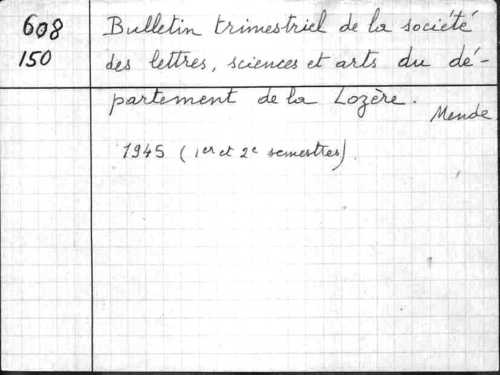 608
150
Bulletin trimestriel de la société
des lettres, sciences et arts du dé-
partement de la Lozère.
Mende
1945 (1er et 2e semestres).